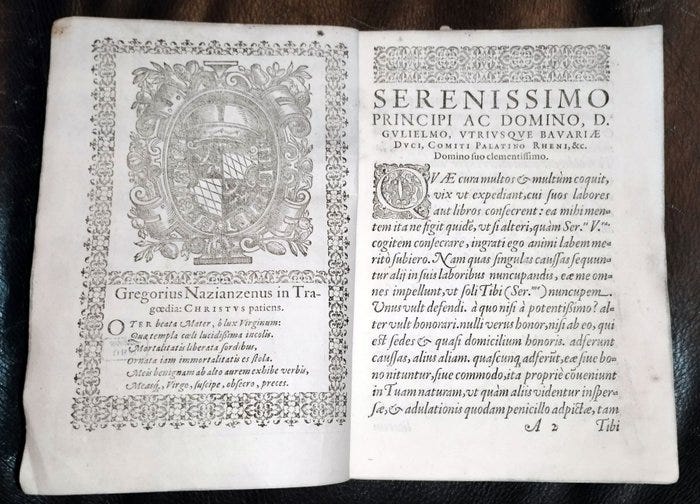 Gregorius Nazianzenus in Tra-
gœdia: CHRISTVS patiens.
O TER beata Mater, ô lux Virginum:
Quæ templa cœli lucidissima incolis.
Mortalitatis liberata sordibus,
Ornata iam immortalitatis es stola.
Meis benignam ab alto aurem exhibe verbis,
Measq́, Virgo, suscipe, obsecro, preces.
SERENISSIMO
PRINCIPI AC DOMINO, D.
GVLIELMO, VTRIVSQVE BAVARIÆ
DVCI, COMITI PALATINO RHENI, &c.
Domino suo clementissimo.
QVÆ cura multos & multùm coquit,
vix vt expediant, cui suos labores
aut libros consecrent: ea mihi men-
tem ita ne figit quidẽ, vt si alteri, quàm Ser.ti V.ræ
cogitem consecrare, ingrati ego animi labem me-
ritò subiero. Nam quas singulas caussas sequun-
tur alij in suis laboribus nuncupandis, eæ me om-
nes impellunt, vt soli Tibi (Ser.me) nuncupem.
Vnus vult defendi. à quo nisi à potentißimo? al-
ter vult honorari. nulli verus honor, nisi ab eo, qui
est sedes & quasi domicilium honoris. adferunt
caussas, alius aliam. quascunq́ adferũt, eæ siue bo-
no nituntur, siue commodo, ita propriè cõueniunt
in Tuam naturam, vt quàm aliis videntur insper-
sæ, & adulationis quodam penicillo adpictæ, tam
A 2 Tibi